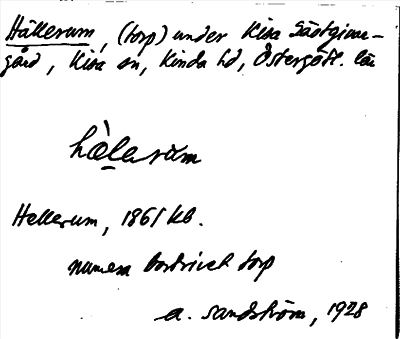 Hällerum, (torp) under Kisa Gästgivare-
gård, Kisa sn, Kinda hd, Östergötl. län
hàlerùm
Hellerum, 1861 kb.
numera bortrivet torp
A. Sandström, 1928